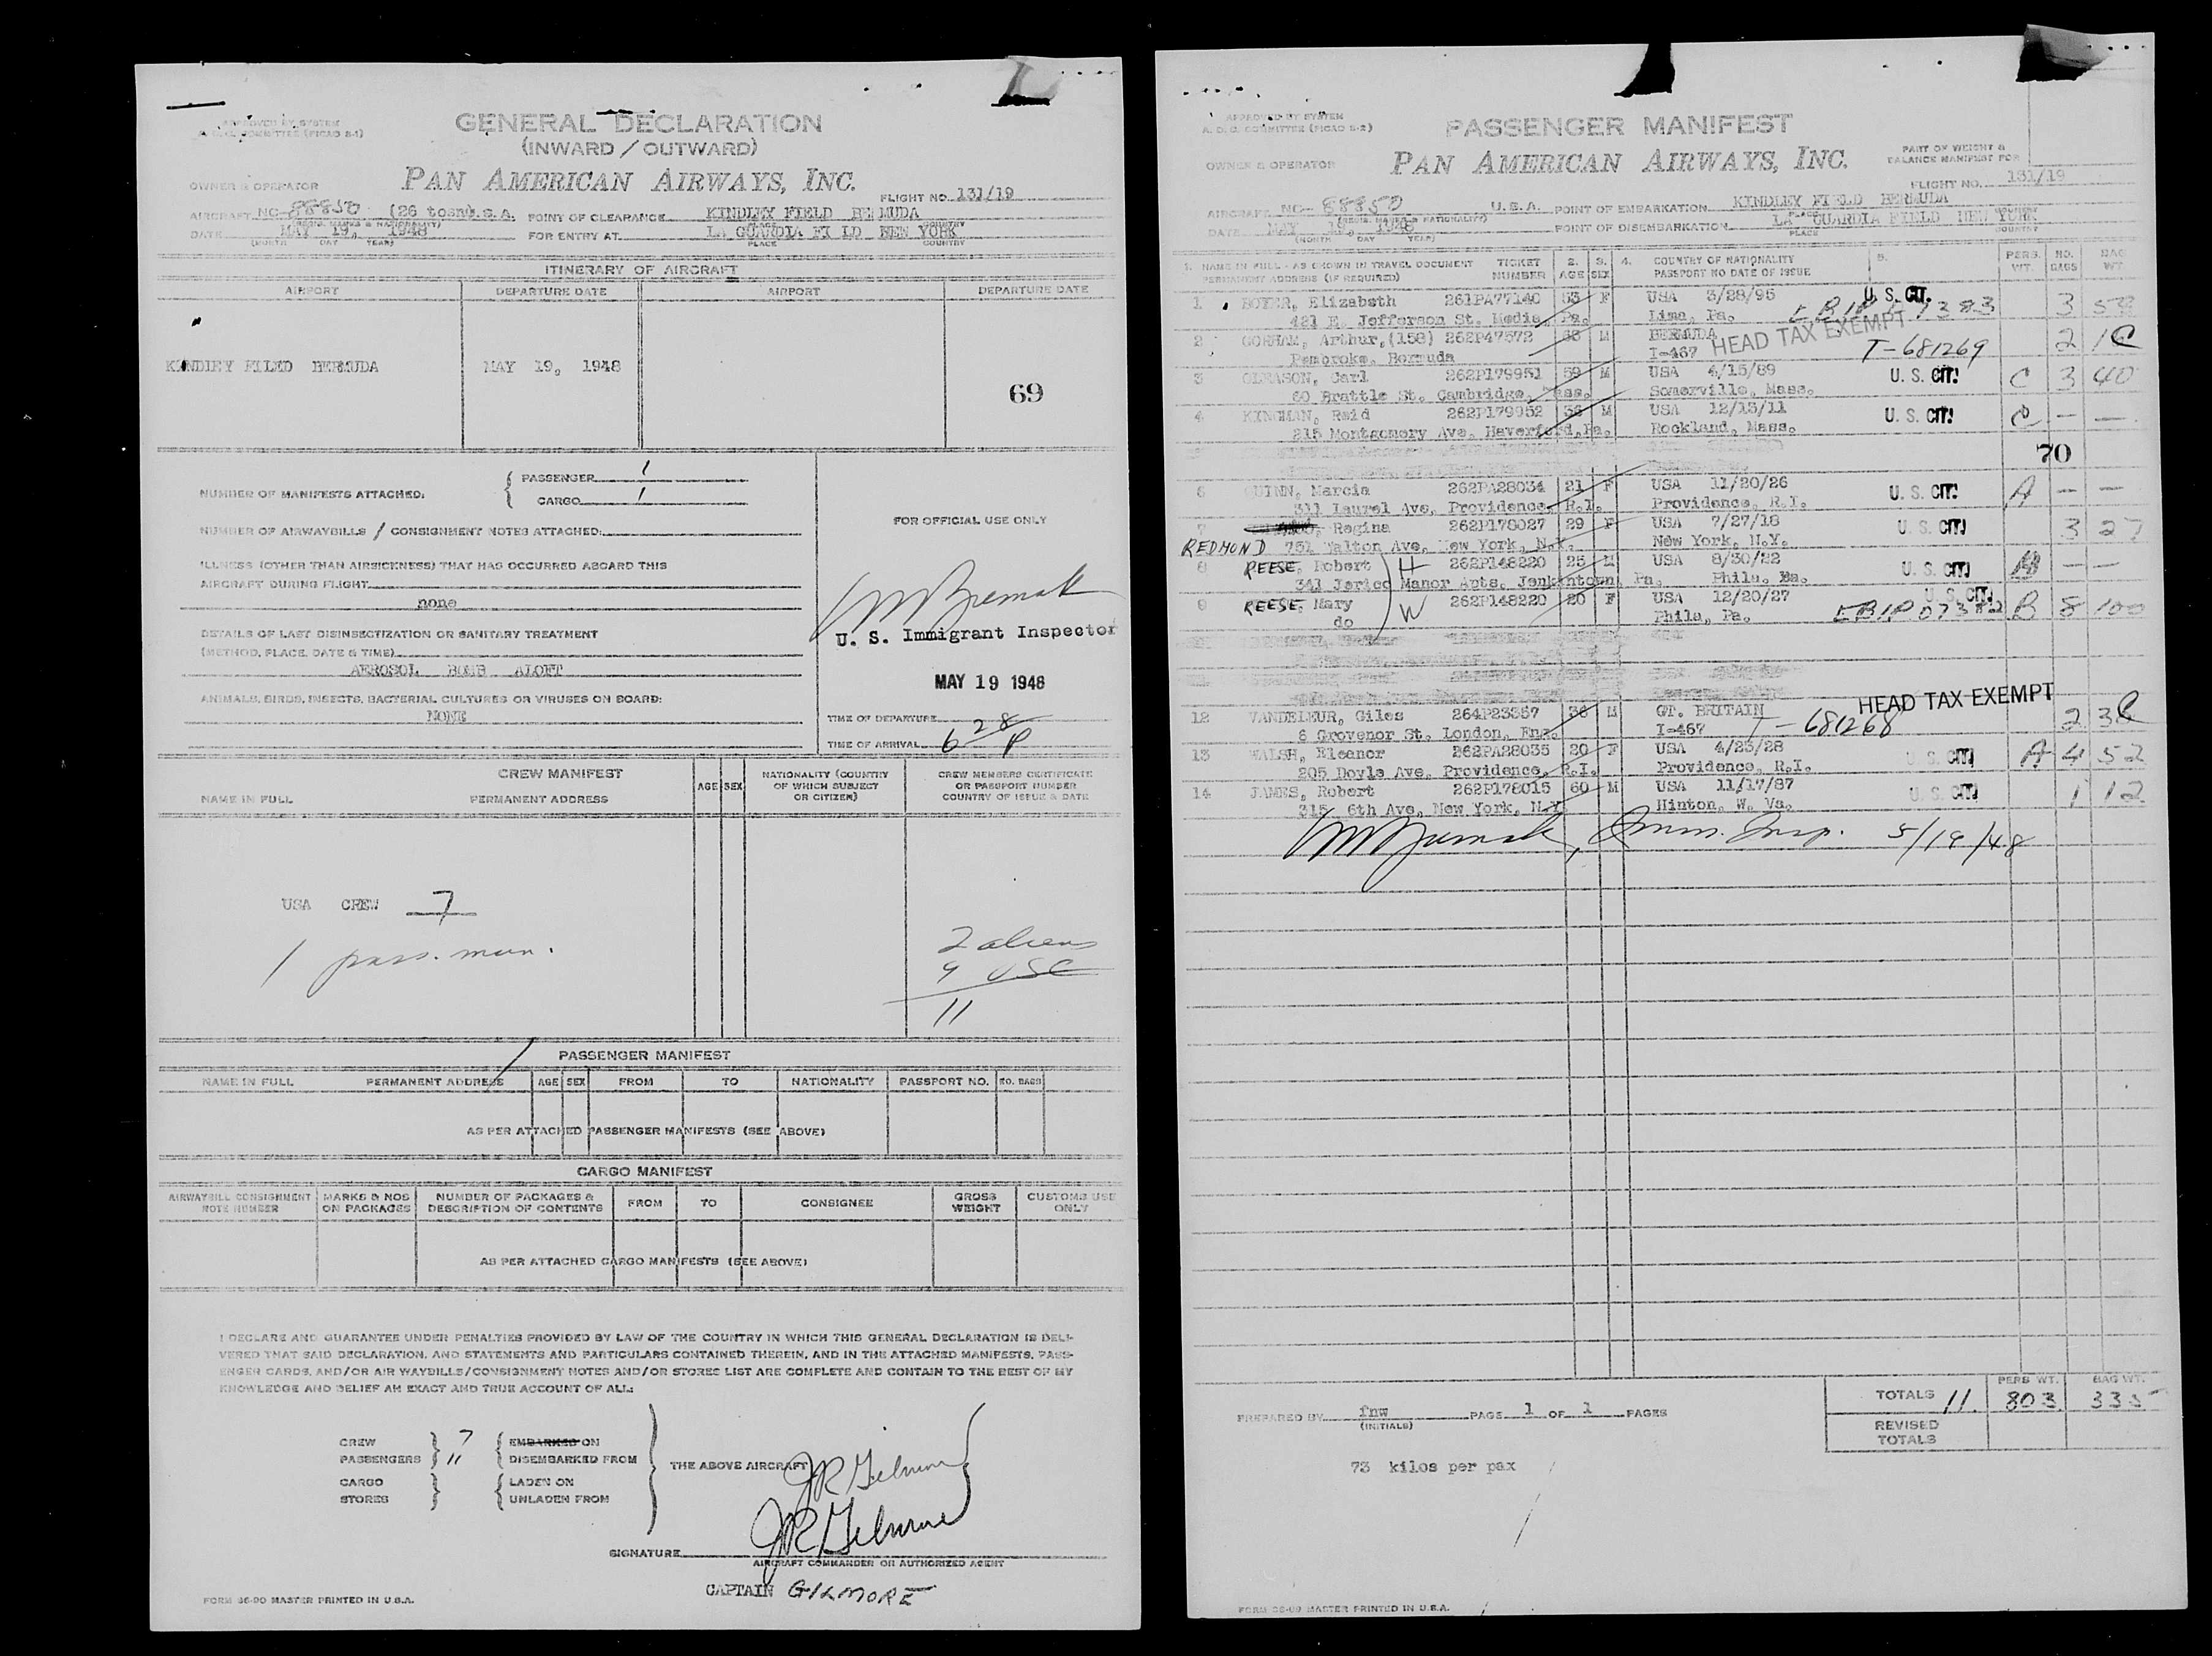 APPROVED BY SYSTEM
A. O. C. COMMITTEE (PICAO S-1)
GENERAL DECLARATION
(INWARD / OUTWARD)
OWNER & OPERATOR PAN AMERICAN AIRWAYS, INC. FLIGHT NO. 131/19
AIRCRAFT NC-88850 (26 U.S.A. POINT OF CLEARANCE KINDLEY FIELD BERMUDA
(REGIS. MARKS & NATIONALITY) COUNTRY
DATE MAY 19, 1948 FOR ENTRY AT LA GUARDIA FI LD NEW YORK
(MONTH DAY YEAR) PLACE COUNTRY
ITINERARY OF AIRCRAFT
AIRPORT DEPARTURE DATE AIRPORT DEPARTURE DATE
KINDLEY FILED BERMUDA MAY 19, 1948
69
NUMBER OF MANIFESTS ATTACHED: PASSENGER 1
CARGO 1
NUMBER OF AIRWAYBILLS / CONSIGNMENT NOTES ATTACHED:
FOR OFFICIAL USE ONLY
ILLNESS (OTHER THAN AIRSICKNESS) THAT HAS OCCURRED ABOARD THIS
AIRCRAFT DURING FLIGHT
none
U. S. Immigrant Inspector
DETAILS OF LAST DISINSECTIZATION OR SANITARY TREATMENT
(METHOD, PLACE, DATE & TIME)
AEROSOL BOMB ALOFT
MAY 19 1948
ANIMALS, BIRDS, INSECTS, BACTERIAL CULTURES OR VIRUSES ON BOARD:
NONE
TIME OF DEPARTURE
TIME OF ARRIVAL 6 28 P
CREW MANIFEST
NAME IN FULL PERMANENT ADDRESS AGE SEX NATIONALITY (COUNTRY OF WHICH SUBJECT OR CITIZEN) CREW MEMBERS CERTIFICATE OR PASSPORT NUMBER COUNTRY OF ISSUE & DATE
USA CREW 7
1 pass. man.
2 aliens
9 USC
11
PASSENGER MANIFEST
NAME IN FULL PERMANENT ADDRESS AGE SEX FROM TO NATIONALITY PASSPORT NO. NO. BAGS
AS PER ATTACHED PASSENGER MANIFESTS (SEE ABOVE)
CARGO MANIFEST
AIRWAYBILL CONSIGNMENT NOTE NUMBER MARKS & NOS ON PACKAGES NUMBER OF PACKAGES & DESCRIPTION OF CONTENTS FROM TO CONSIGNEE GROSS WEIGHT CUSTOMS USE ONLY
AS PER ATTACHED CARGO MANIFESTS (SEE ABOVE)
I DECLARE AND GUARANTEE UNDER PENALTIES PROVIDED BY LAW OF THE COUNTRY IN WHICH THIS GENERAL DECLARATION IS DELI-
VERED THAT SAID DECLARATION, AND STATEMENTS AND PARTICULARS CONTAINED THEREIN, AND IN THE ATTACHED MANIFESTS, PASS-
ENGER CARDS, AND/OR AIR WAYBILLS/CONSIGNMENT NOTES AND/OR STORES LIST ARE COMPLETE AND CONTAIN TO THE BEST OF MY
KNOWLEDGE AND BELIEF AN EXACT AND TRUE ACCOUNT OF ALL:
CREW 7 EMBARKED ON
PASSENGERS 11 DISEMBARKED FROM THE ABOVE AIRCRAFT JR Gilmore
CARGO LADEN ON
STORES UNLADEN FROM
SIGNATURE JR Gilmore
AIRCRAFT COMMANDER OR AUTHORIZED AGENT
CAPTAIN GILMORE
FORM 36-90 MASTER PRINTED IN U.S.A.
APPROVED BY SYSTEM
A. O. C. COMMITTEE (PICAO S-2)
PASSENGER MANIFEST
PART OF WEIGHT &
BALANCE MANIFEST FOR
OWNER & OPERATOR PAN AMERICAN AIRWAYS, INC.
FLIGHT NO. 131/19
AIRCRAFT NC- 88850 U.S.A. POINT OF EMBARKATION KINDLEY FIELD BERMUDA
(REGIS. MARKS & NATIONALITY) PLACE COUNTRY
DATE MAY 19, 1948 POINT OF DISEMBARKATION LA GUARDIA FIELD NEW YORK
(MONTH DAY YEAR) PLACE COUNTRY
1. NAME IN FULL - AS SHOWN IN TRAVEL DOCUMENT TICKET 2. 3. 4. COUNTRY OF NATIONALITY 5. PERS. NO. BAG
PERMANENT ADDRESS (IF REQUIRED) NUMBER AGE SEX PASSPORT NO DATE OF ISSUE WT. BAGS WT.
1 BOYER, Elizabeth 261PA77140 53 F USA 3/28/95 U. S. CIT. 3
421 E. Jefferson St. Media, Pa. Lima, Pa. EBIP 07383
2 GORHAM, Arthur,(158) 262P47572 68 M BERMUDA HEAD TAX EXEMPT 2
Pembroke, Bermuda I-467 T-681269
3 GLEASON, Carl 262P179951 59 M USA 4/15/89 U. S. CIT! C 3 40
60 Brattle St. Cambridge, Mass. Somerville, Mass.
4 KINGMAN, Reid 262P179952 36 M USA 12/13/11 U. S. CIT! C — —
215 Montgomery Ave, Haverford, Pa. Rockland, Mass.
70
6 QUINN, Marcia 262PA28034 21 F USA 11/20/26 U. S. CIT! A — —
311 Laurel Ave, Providence, R.I. Providence, R.I.
7 Regina 262P178027 29 F USA 7/27/18 U. S. CIT! 3 27
REDMOND 751 Walton Ave, New York, N.Y. New York, N.Y.
8 REESE, Robert H 262P148220 25 M USA 8/30/22 U. S. CIT! B — —
341 Jerico Manor Apts, Jenkintown, Pa. Phila, Pa.
9 REESE, Mary W 262P148220 20 F USA 12/20/27 U. S. CIT! B 8 100
do Phila, Pa. EBIP 07382
12 VANDELEUR, Giles 264P23357 36 M GT. BRITAIN HEAD TAX EXEMPT 2
8 Grovenor St, London, Eng. I-467 T-681268
13 WALSH, Eleanor 262PA28035 20 F USA 4/25/28 U. S. CIT! A 4 52
205 Doyle Ave, Providence, R.I. Providence, R.I.
14 JAMES, Robert 262P178015 60 M USA 11/17/87 U. S. CIT! 1 12
315 6th Ave, New York, N.Y. Hinton, W. Va.
Imm. Insp. 5/19/48
PERS WT. BAG WT.
TOTALS 11. 803 335
REVISED
TOTALS
PREPARED BY fnw PAGE 1 OF 1 PAGES
(INITIALS)
73 kilos per pax
FORM 36-89 MASTER PRINTED IN U.S.A.